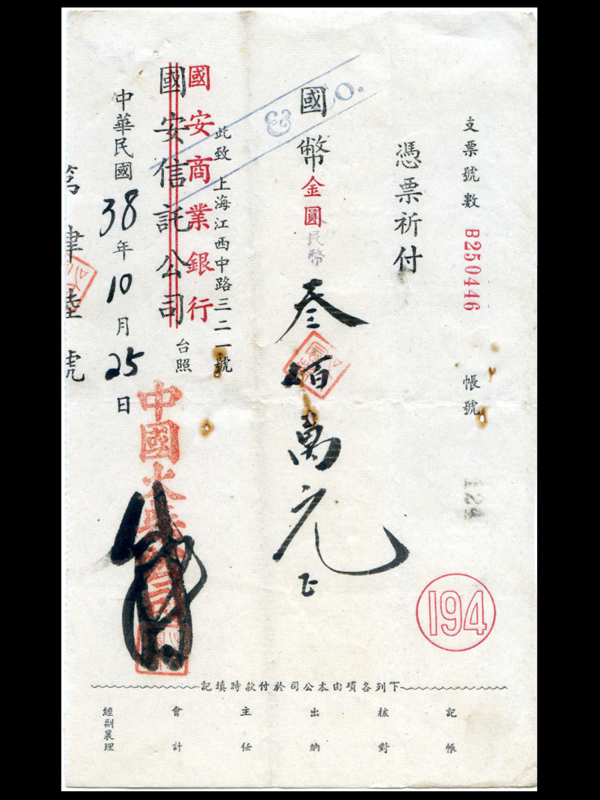 支票號數 B250446 帳號 124
憑票祈付
國幣金圓 民幣 叁佰萬元正
& CO.
此致 上海江西中路三二一號
國安商業銀行
國安信託公司 台照
中華民國38年10月25日
中國
194
下列各項由本公司於付款時填記
記帳
核對
出納
主任
會計
經副襄理